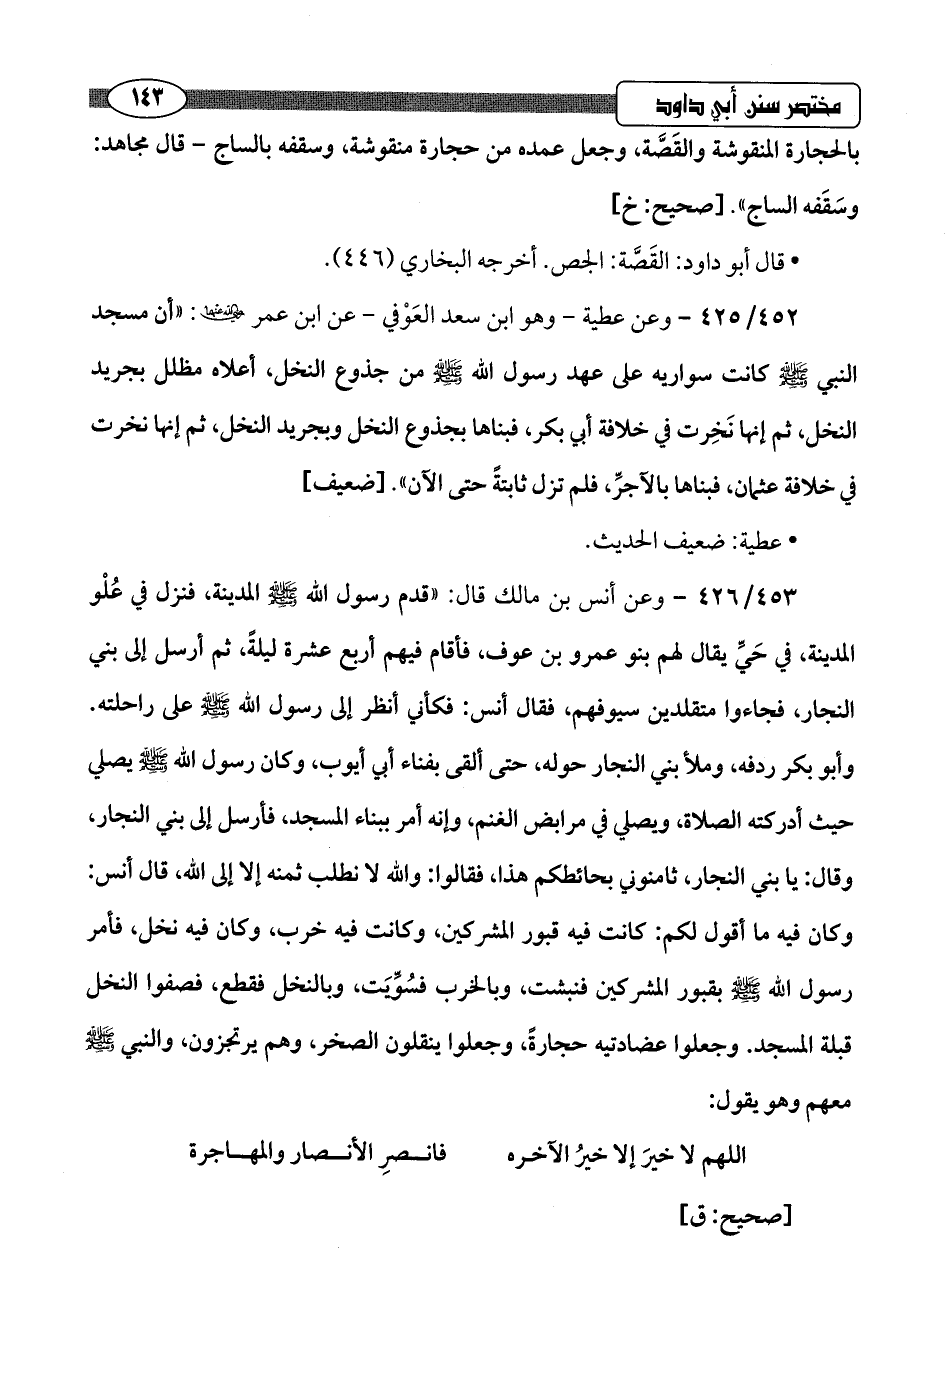 مختصر سنن أبي داود ١٤٣
بالحجارة المنقوشة والقَصَّة، وجعل عمده من حجارة منقوشة، وسقفه بالساج - قال مجاهد:
وسَقَفه الساج». [صحيح: خ]
• قال أبو داود: القَصَّة: الجص. أخرجه البخاري (٤٤٦).
٤٢٥/٤٥٢ - وعن عطية - وهو ابن سعد العَوْفي - عن ابن عمر رضي الله عنهما: «أن مسجد
النبي ﷺ كانت سواريه على عهد رسول الله ﷺ من جذوع النخل، أعلاه مظلل بجريد
النخل، ثم إنها نَخِرت في خلافة أبي بكر، فبناها بجذوع النخل وبجريد النخل، ثم إنها نخرت
في خلافة عثمان، فبناها بالآجرِّ، فلم تزل ثابتةً حتى الآن». [ضعيف]
• عطية: ضعيف الحديث.
٤٢٦/٤٥٣ - وعن أنس بن مالك قال: «قدم رسول الله ﷺ المدينة، فنزل في عُلْو
المدينة، في حَيٍّ يقال لهم بنو عمرو بن عوف، فأقام فيهم أربع عشرة ليلةً، ثم أرسل إلى بني
النجار، فجاءوا متقلدين سيوفهم، فقال أنس: فكأني أنظر إلى رسول الله ﷺ على راحلته.
وأبو بكر ردفه، وملأ بني النجار حوله، حتى ألقى بفناء أبي أيوب، وكان رسول الله ﷺ يصلي
حيث أدركته الصلاة، ويصلي في مرابض الغنم، وإنه أمر ببناء المسجد، فأرسل إلى بني النجار،
وقال: يا بني النجار، ثامنوني بحائطكم هذا، فقالوا: والله لا نطلب ثمنه إلا إلى الله، قال أنس:
وكان فيه ما أقول لكم: كانت فيه قبور المشركين، وكانت فيه خرب، وكان فيه نخل، فأمر
رسول الله ﷺ بقبور المشركين فنبشت، وبالخرب فسُوِّيَت، وبالنخل فقطع، فصفوا النخل
قبلة المسجد. وجعلوا عضادتيه حجارةً، وجعلوا ينقلون الصخر، وهم يرتجزون، والنبي ﷺ
معهم وهو يقول:
اللهم لا خيرَ إلا خيرُ الآخره فانـــصرِ الأنـــصار والمهـــاجرة
[صحيح: ق]